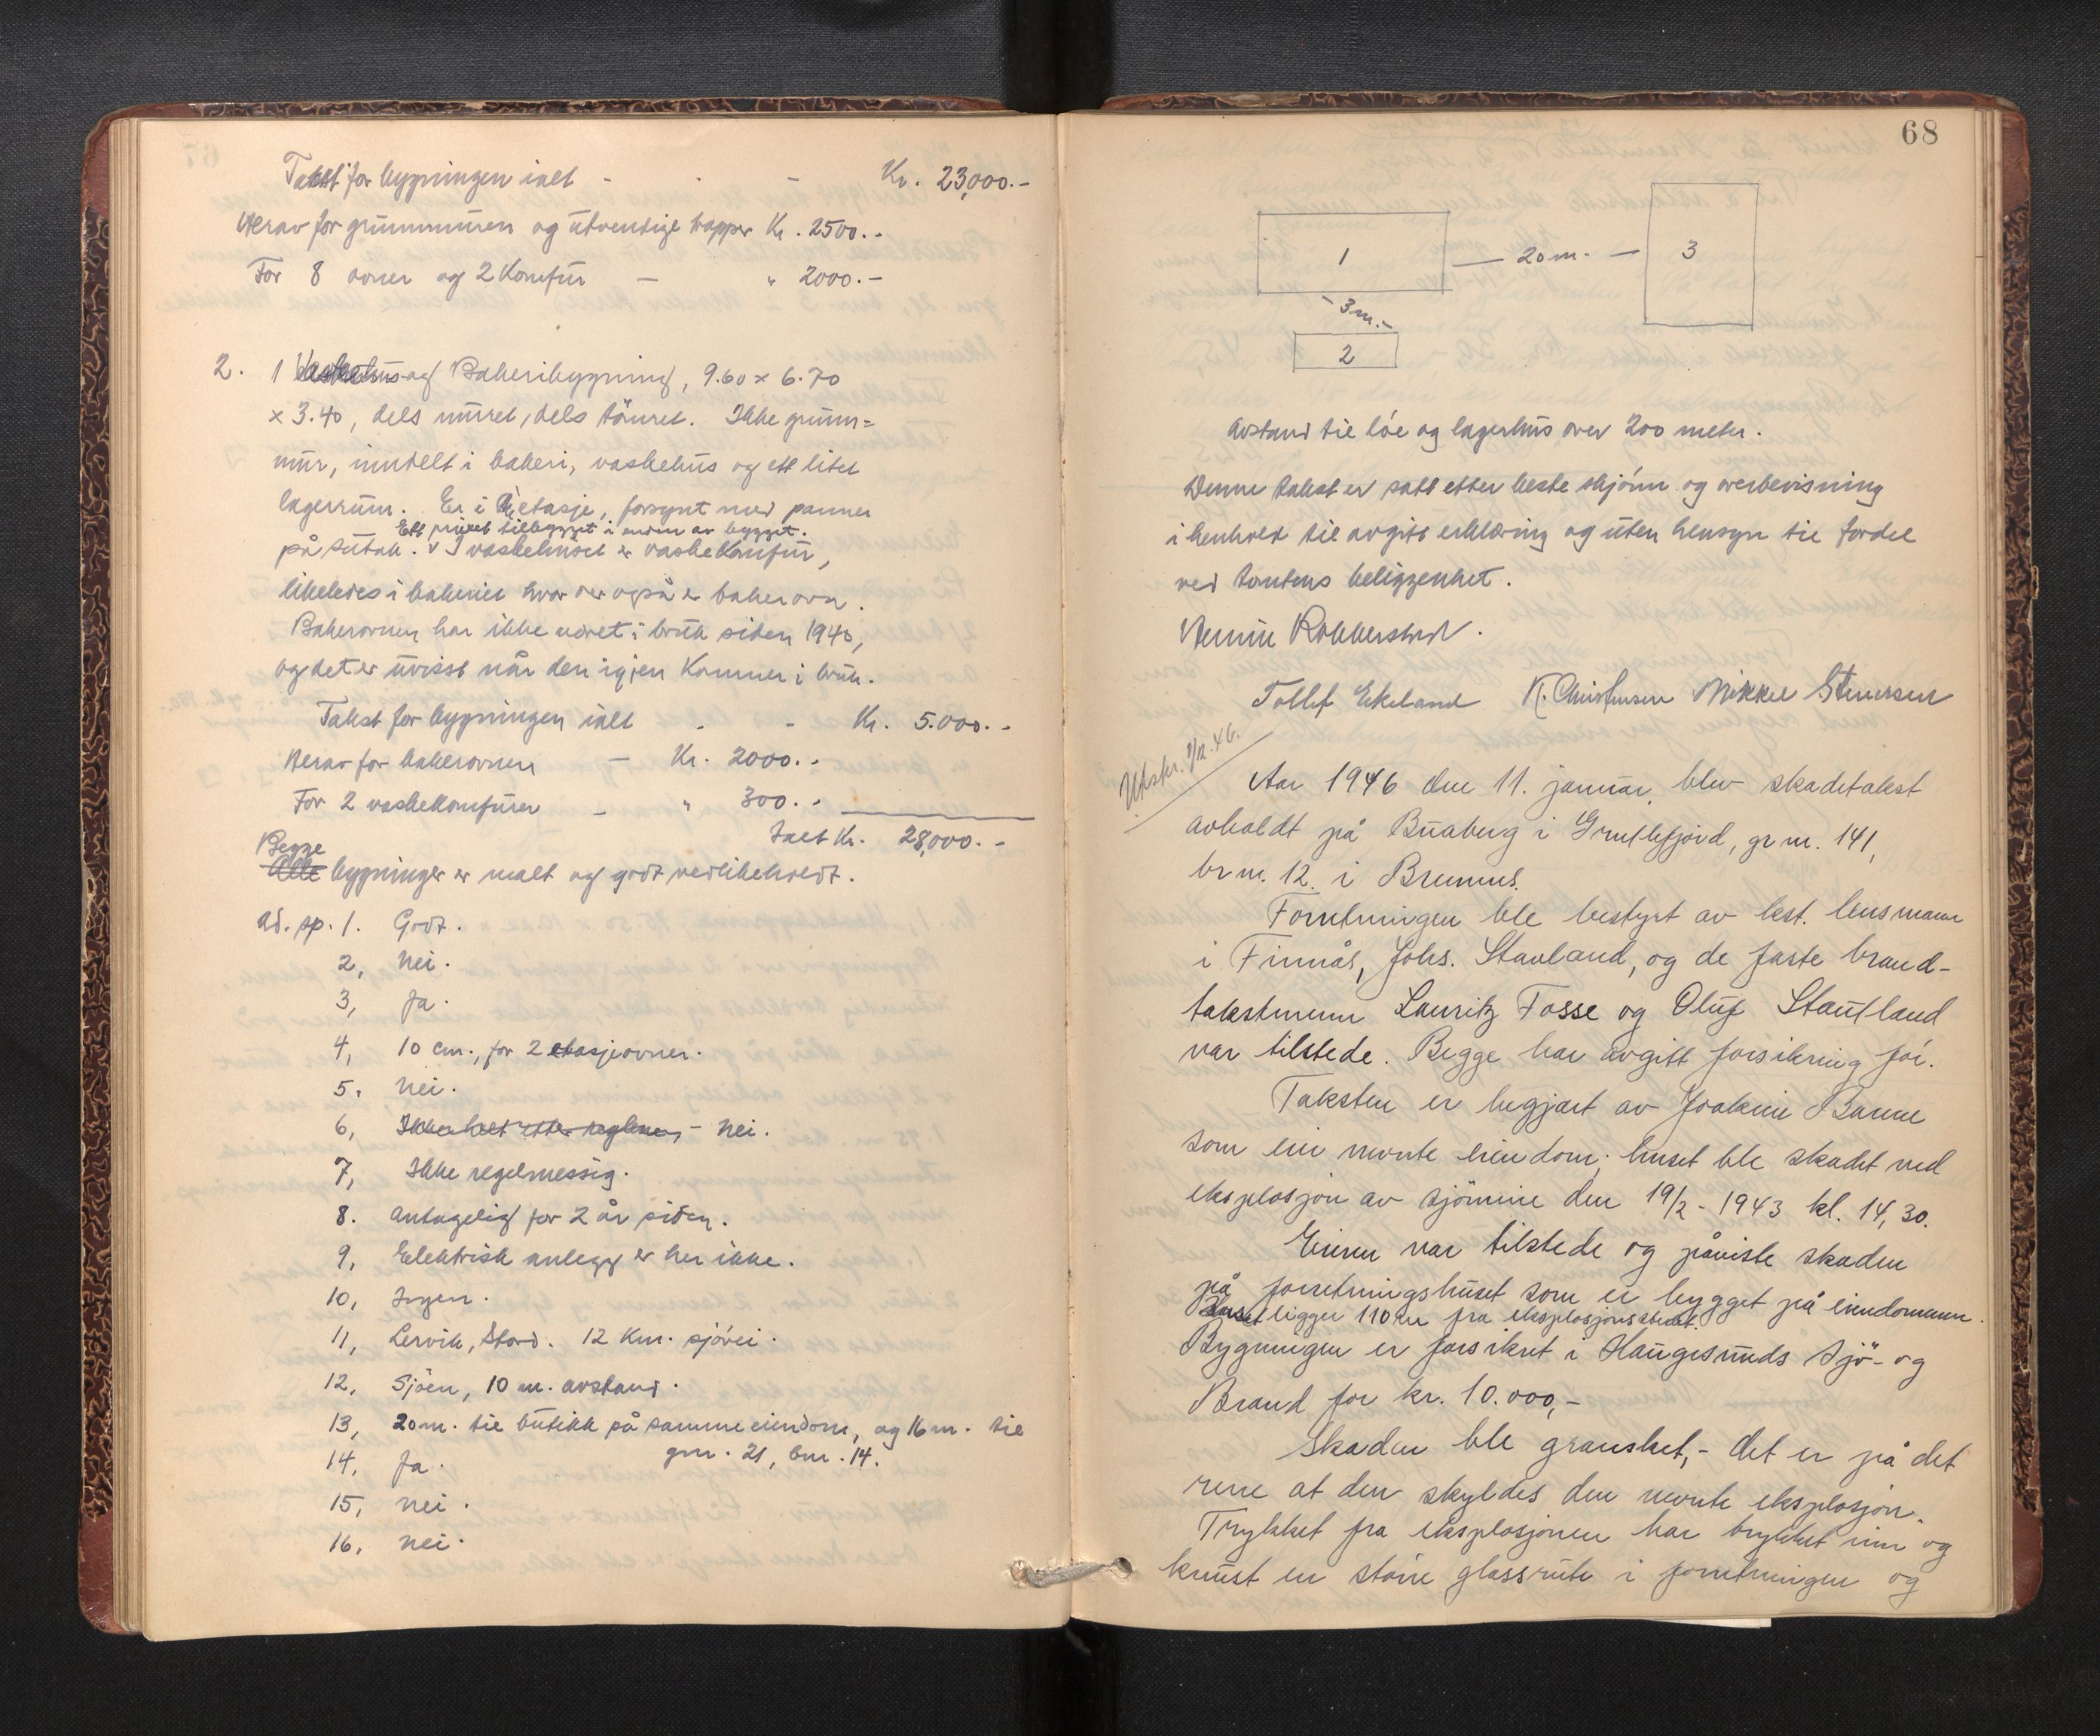 Takst for bygningen ialt - - - Kr. 23,000.-
Herav for grunnmuren og utvendige trapper Kr. 2500.-
For 8 ovner og 2 komfur - " 2000.-
2. 1 Vaskehus og Bakeribygning, 9.60 x 6.70
x 3.40, dels muret, dels tömret. Ikke grunn=
mur, inndelt i bakeri, vaskehus og ett litet
lagerrum. Er i 1 etasje, forsynt med panner
Ett privet tilbygget i enden av bygget.
på sutak. v I vaskehuset er vaskekomfur,
likeledes i bakeriet hvor der også er bakerovn.
Bakerovnen har ikke været i bruk siden 1940,
og det er uvisst når den igjen kommer i bruk.
Takst for bygningen ialt - - Kr. 5.000.-
Herav for bakerovnen - Kr. 2000.-
For 2 vaskekomfurer - " 300.-
Ialt Kr. 28,000.-
Begge
Alle bygninger er malt og godt vedlikeholdt.
ad. sp. 1. Godt.
2, Nei.
3, Ja.
4, 10 cm., for 2 etasjeovner.
5. Nei.
6, - Nei.
7, Ikke regelmessig.
8. Antagelig for 2 år siden.
9, Elektrisk anlegg er her ikke.
10, Ingen.
11, Lervik, Stord. 12 Km. sjövei.
12, Sjöen, 10 m. avstand.
13, 20 m. til butikk på samme eiendom, og 16 m. til
gnr. 21, bnr. 14.
14, Ja.
15, Nei.
16, Nei.
68
1 — 20 m. — 3
- 3 m. -
2
Avstand til löe og lagerhus over 200 meter.
Denne takst er satt etter beste skjönn og overbevisning
i henhold til avgitt erklæring og uten hensyn til fordel
ved tomtens beliggenhet.
Tollef Ekeland K. Christensen Mikkel Simersen
Utskr. 7/12.46.
Aar 1946 den 11. januar, blev skadetakst
avholdt på Buaberg i Gruttefjord, gr nr. 141,
br nr. 12. i Bremnes.
Forretningen ble bestyrt av best. lensmann
i Finnås, Johs. Stavland, og de faste brand-
takstmenn Lauritz Fosse og Oluf Stautland
var tilstede. Begge har avgitt forsikring för.
Taksten er begjært av Joakim Banne
som eier nevnte eiendom; huset ble skadet ved
eksplosjon av sjömine den 19/2 - 1943 kl. 14,30.
Eieren var tilstede og påviste skaden
på forretningshuset som er bygget på eiendommen.
Huset ligger 110 m fra eksplosjonsstedet.
Bygningen er forsikret i Haugesunds Sjö- og
Brand for kr. 10.000,-
Skaden ble gransket, - det er på det
rene at den skyldes den nevnte eksplosjon.
Trykket fra eksplosjonen har trykket inn og
knust en större glassrute i forretningen og